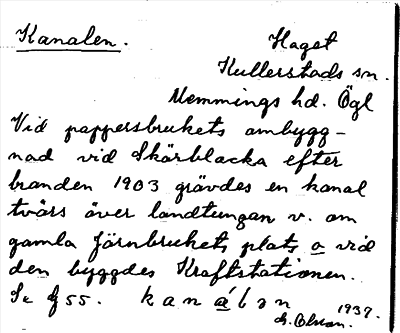 Kanalen.
Haget
Kullerstads sn.
Memmings hd. Ögl
Vid pappersbrukets ombygg-
nad vid Skärblacka efter
branden 1903 grävdes en kanal
tvärs över landtungan v. om
gamla Järnbrukets plats o vid
den byggdes Kraftstationen.
Se f 55. kanálən
1937.
Olsson.